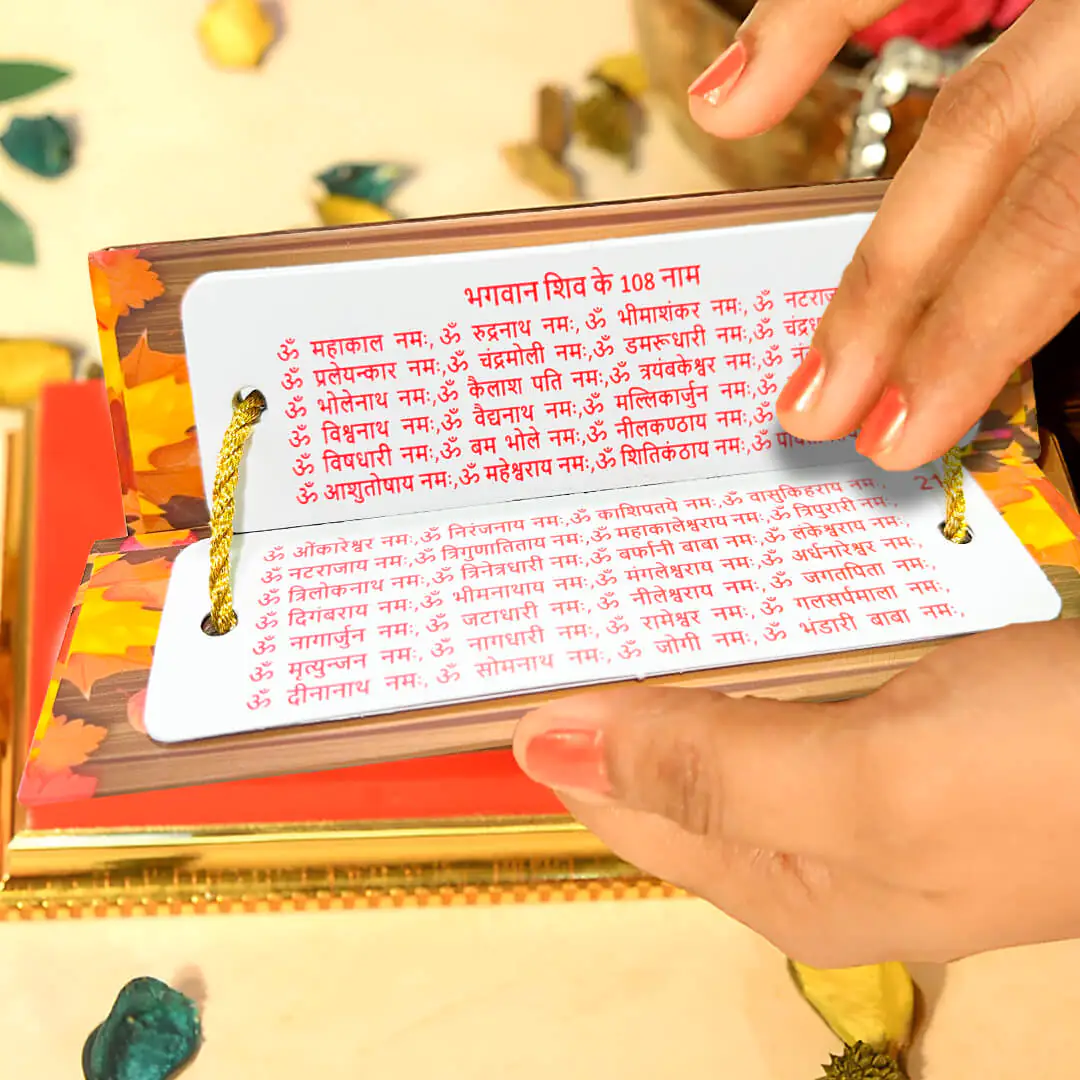 भगवान शिव के 108 नाम
ॐ महाकाल नमः, ॐ रुद्रनाथ नमः, ॐ भीमाशंकर नमः, ॐ
ॐ प्रलेयन्कार नमः, ॐ चंद्रमोली नमः, ॐ डमरूधारी नमः, ॐ
ॐ भोलेनाथ नमः, ॐ कैलाश पति नमः, ॐ त्रयंबकेश्वर नमः,
ॐ विश्वनाथ नमः, ॐ वैद्यनाथ नमः, ॐ मल्लिकार्जुन नमः, ॐ
ॐ विषधारी नमः, ॐ बम भोले नमः, ॐ नीलकण्ठाय नमः, ॐ
ॐ आशुतोषाय नमः, ॐ महेश्वराय नमः, ॐ शितिकंठाय नमः, ॐ
21
ॐ ओंकारेश्वर नमः, ॐ निरंजनाय नमः, ॐ काशिपतये नमः, ॐ वासुकिहराय नमः,
ॐ नटराजाय नमः, ॐ त्रिगुणातिताय नमः, ॐ महाकालेश्वराय नमः, ॐ त्रिपुरारी नमः,
ॐ त्रिलोकनाथ नमः, ॐ त्रिनेत्रधारी नमः, ॐ बर्फानी बाबा नमः, ॐ लंकेश्वराय नमः,
ॐ दिगंबराय नमः, ॐ भीमनाथाय नमः, ॐ मंगलेश्वराय नमः, ॐ अर्धनारेश्वर नमः,
ॐ नागार्जुन नमः, ॐ जटाधारी नमः, ॐ नीलेश्वराय नमः, ॐ जगतपिता नमः,
ॐ मृत्युन्जन नमः, ॐ नागधारी नमः, ॐ रामेश्वर नमः, ॐ गलसर्पमाला नमः,
ॐ दीनानाथ नमः, ॐ सोमनाथ नमः, ॐ जोगी नमः, ॐ भंडारी बाबा नमः,